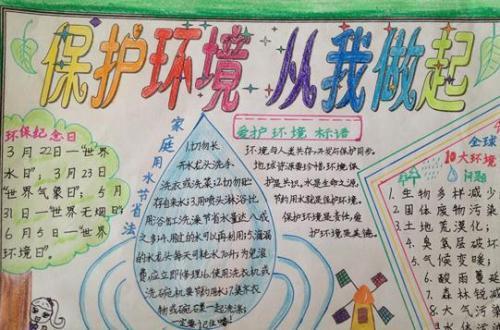 保护环境 从我做起
环保纪念日
3月22日—“世界
水日”；3月23日
“世界气象日”；5月
31日—“世界无烟日”；
6月5日—“世界
环境日”。
家庭用水节省法
1.切勿长
开水龙头洗手、
洗衣或洗菜；2.切勿贮
存自来水；3.用喷头淋浴比
用浴缸洗澡节省水量达八成
之多；4.用过的水可以再利用；5.滴漏
的水龙头每天可耗水70升；为免浪
费，应立即修理；6.使用洗衣机或
洗碗机要节约用水；7.集齐衣
物或碗碟一起洗涤；
一定要记住哦！
爱护环境 标语
环境与人类共存，开发与保护同步。
地球资源要珍惜，环境保
护是关识，水是生命之源，
节约用水就是保护环境。
保护环境是责任，爱
护环境是美德。
全球
10大环境
问题
1.生物多样减少
2.固体废物污染
3.土地荒漠化；
4.臭氧层破坏
5.气候变暖；
6.酸雨蔓延
7.森林锐减
8.大气污
9.水体